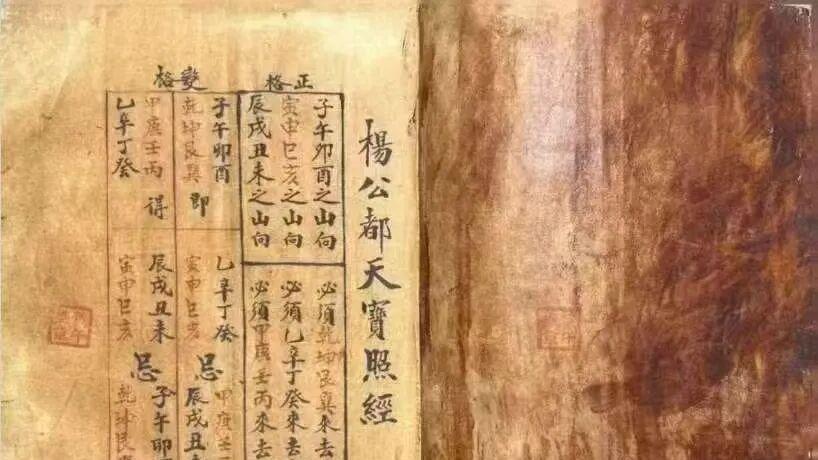 楊公都天寶照經
正格
子午卯酉之山向
寅申巳亥之山向
辰戌丑未之山向
必須乾坤艮巽來去
必須乙辛丁癸來去
必須甲庚壬丙來去
變格
子午卯酉
乾坤艮巽
即
乙辛丁癸
寅申巳亥
忌
甲庚壬
辰戌丑
甲庚壬丙
乙辛丁癸
得
辰戌丑未
寅申巳亥
忌
子午卯
乾坤艮